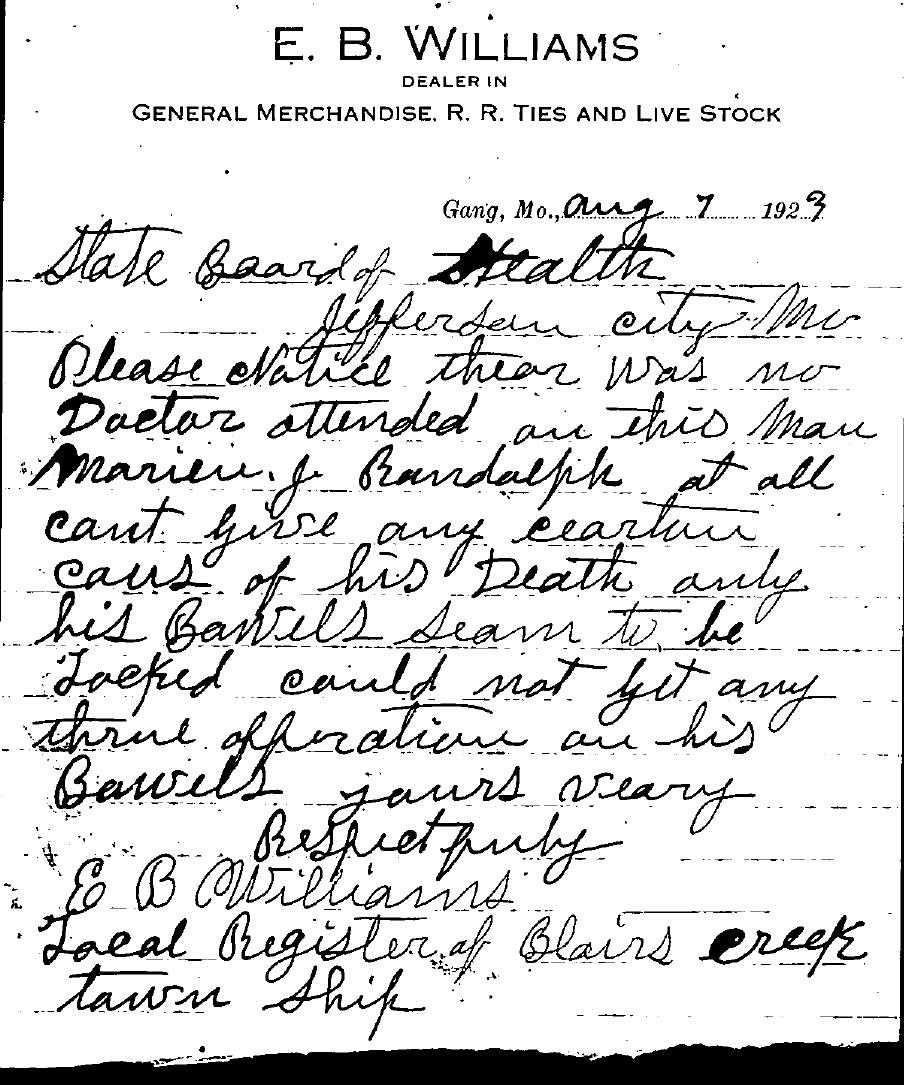 E. B. WILLIAMS
DEALER IN
GENERAL MERCHANDISE, R. R. TIES AND LIVE STOCK
Gang, Mo., Aug 7 1923
State Board of Health
Jefferson city Mo
Please Notice thear was no
Doctor attended on this Man
Marien. J Randolph at all
cant give any ceartin
caus of his Death only
his Bowels seam to be
Locked could not get any
thrue opperation on his
Bowels yours veary
Respectfuly
E B Williams
Local Register of Blairs creek
town ship